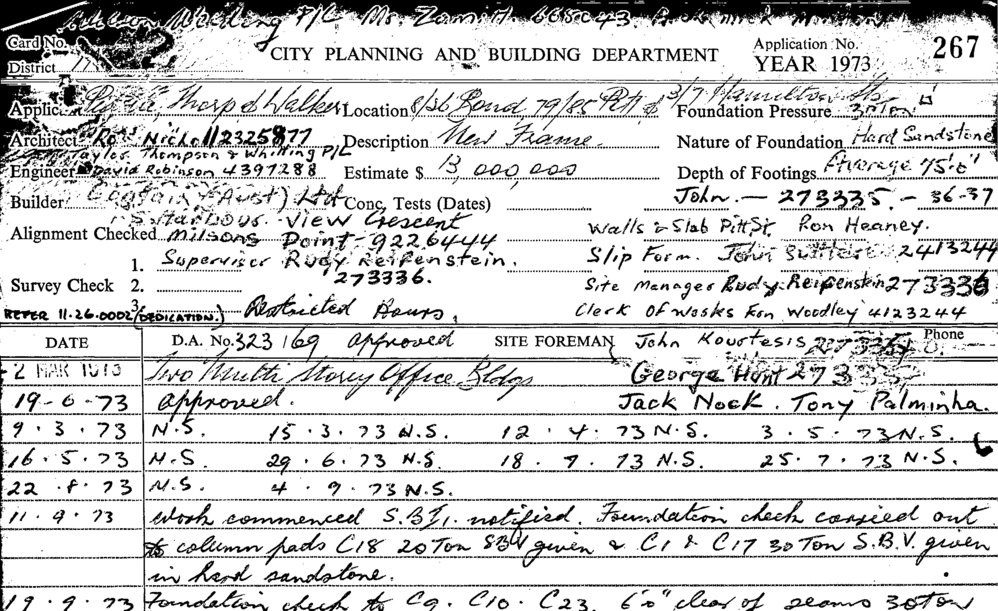 Welding P/L Mr. Zammit. 665043.
Card No. CITY PLANNING AND BUILDING DEPARTMENT Application No. 267
District 17 YEAR 1973
Applic. Thorp & Walker Location 8/26 Bond, 79/85 Pitt & 3/7 Hamilton Sts Foundation Pressure 30 Ton
Architect Ross Nicholl 2325877 Description New Frame. Nature of Foundation Hard Sandstone
Taylor Thompson & Whitting P/L
Engineer David Robinson 4397288 Estimate $ 13,000,000 Depth of Footings Average 75'0"
Builder (Aust) Ltd Conc. Tests (Dates) John. — 273335. - 36-37
5 Harbour View Crescent Walls & Slab Pitt St. Ron Heaney.
Alignment Checked Milsons Point - 9226444
1. Supervisor Rudy Reifenstein. Slip Form. John 2413244
Survey Check 2. 273336. Site Manager Rudy Reifenstein 273336
3. Restricted Hours.
REFER 11.26.0002 (DEDICATION.) Clerk of Works Ron Woodley 4123244
DATE D.A. No. 323/69 approved SITE FOREMAN John Kourtesis Phone
2 MAR 1973 Two Multi Storey Office Bldgs George Hunt
19-6-73 approved. Jack Nock. Tony Palminha.
9.3.73 N.S. 15.3.73 N.S. 12.4.73 N.S. 3.5.73 N.S.
16.5.73 N.S. 29.6.73 N.S. 18.7.73 N.S. 25.7.73 N.S.
22.8.73 N.S. 4.9.73 N.S.
11.9.73 Work commenced S.B.I. notified. Foundation check carried out
to column pads C18 20 Ton SBV given & C1 & C17 30 Ton S.B.V. given
in hard sandstone.
19.9.73 Foundation check to C9. C10. C23. 6'0" clear of seams 30 ton